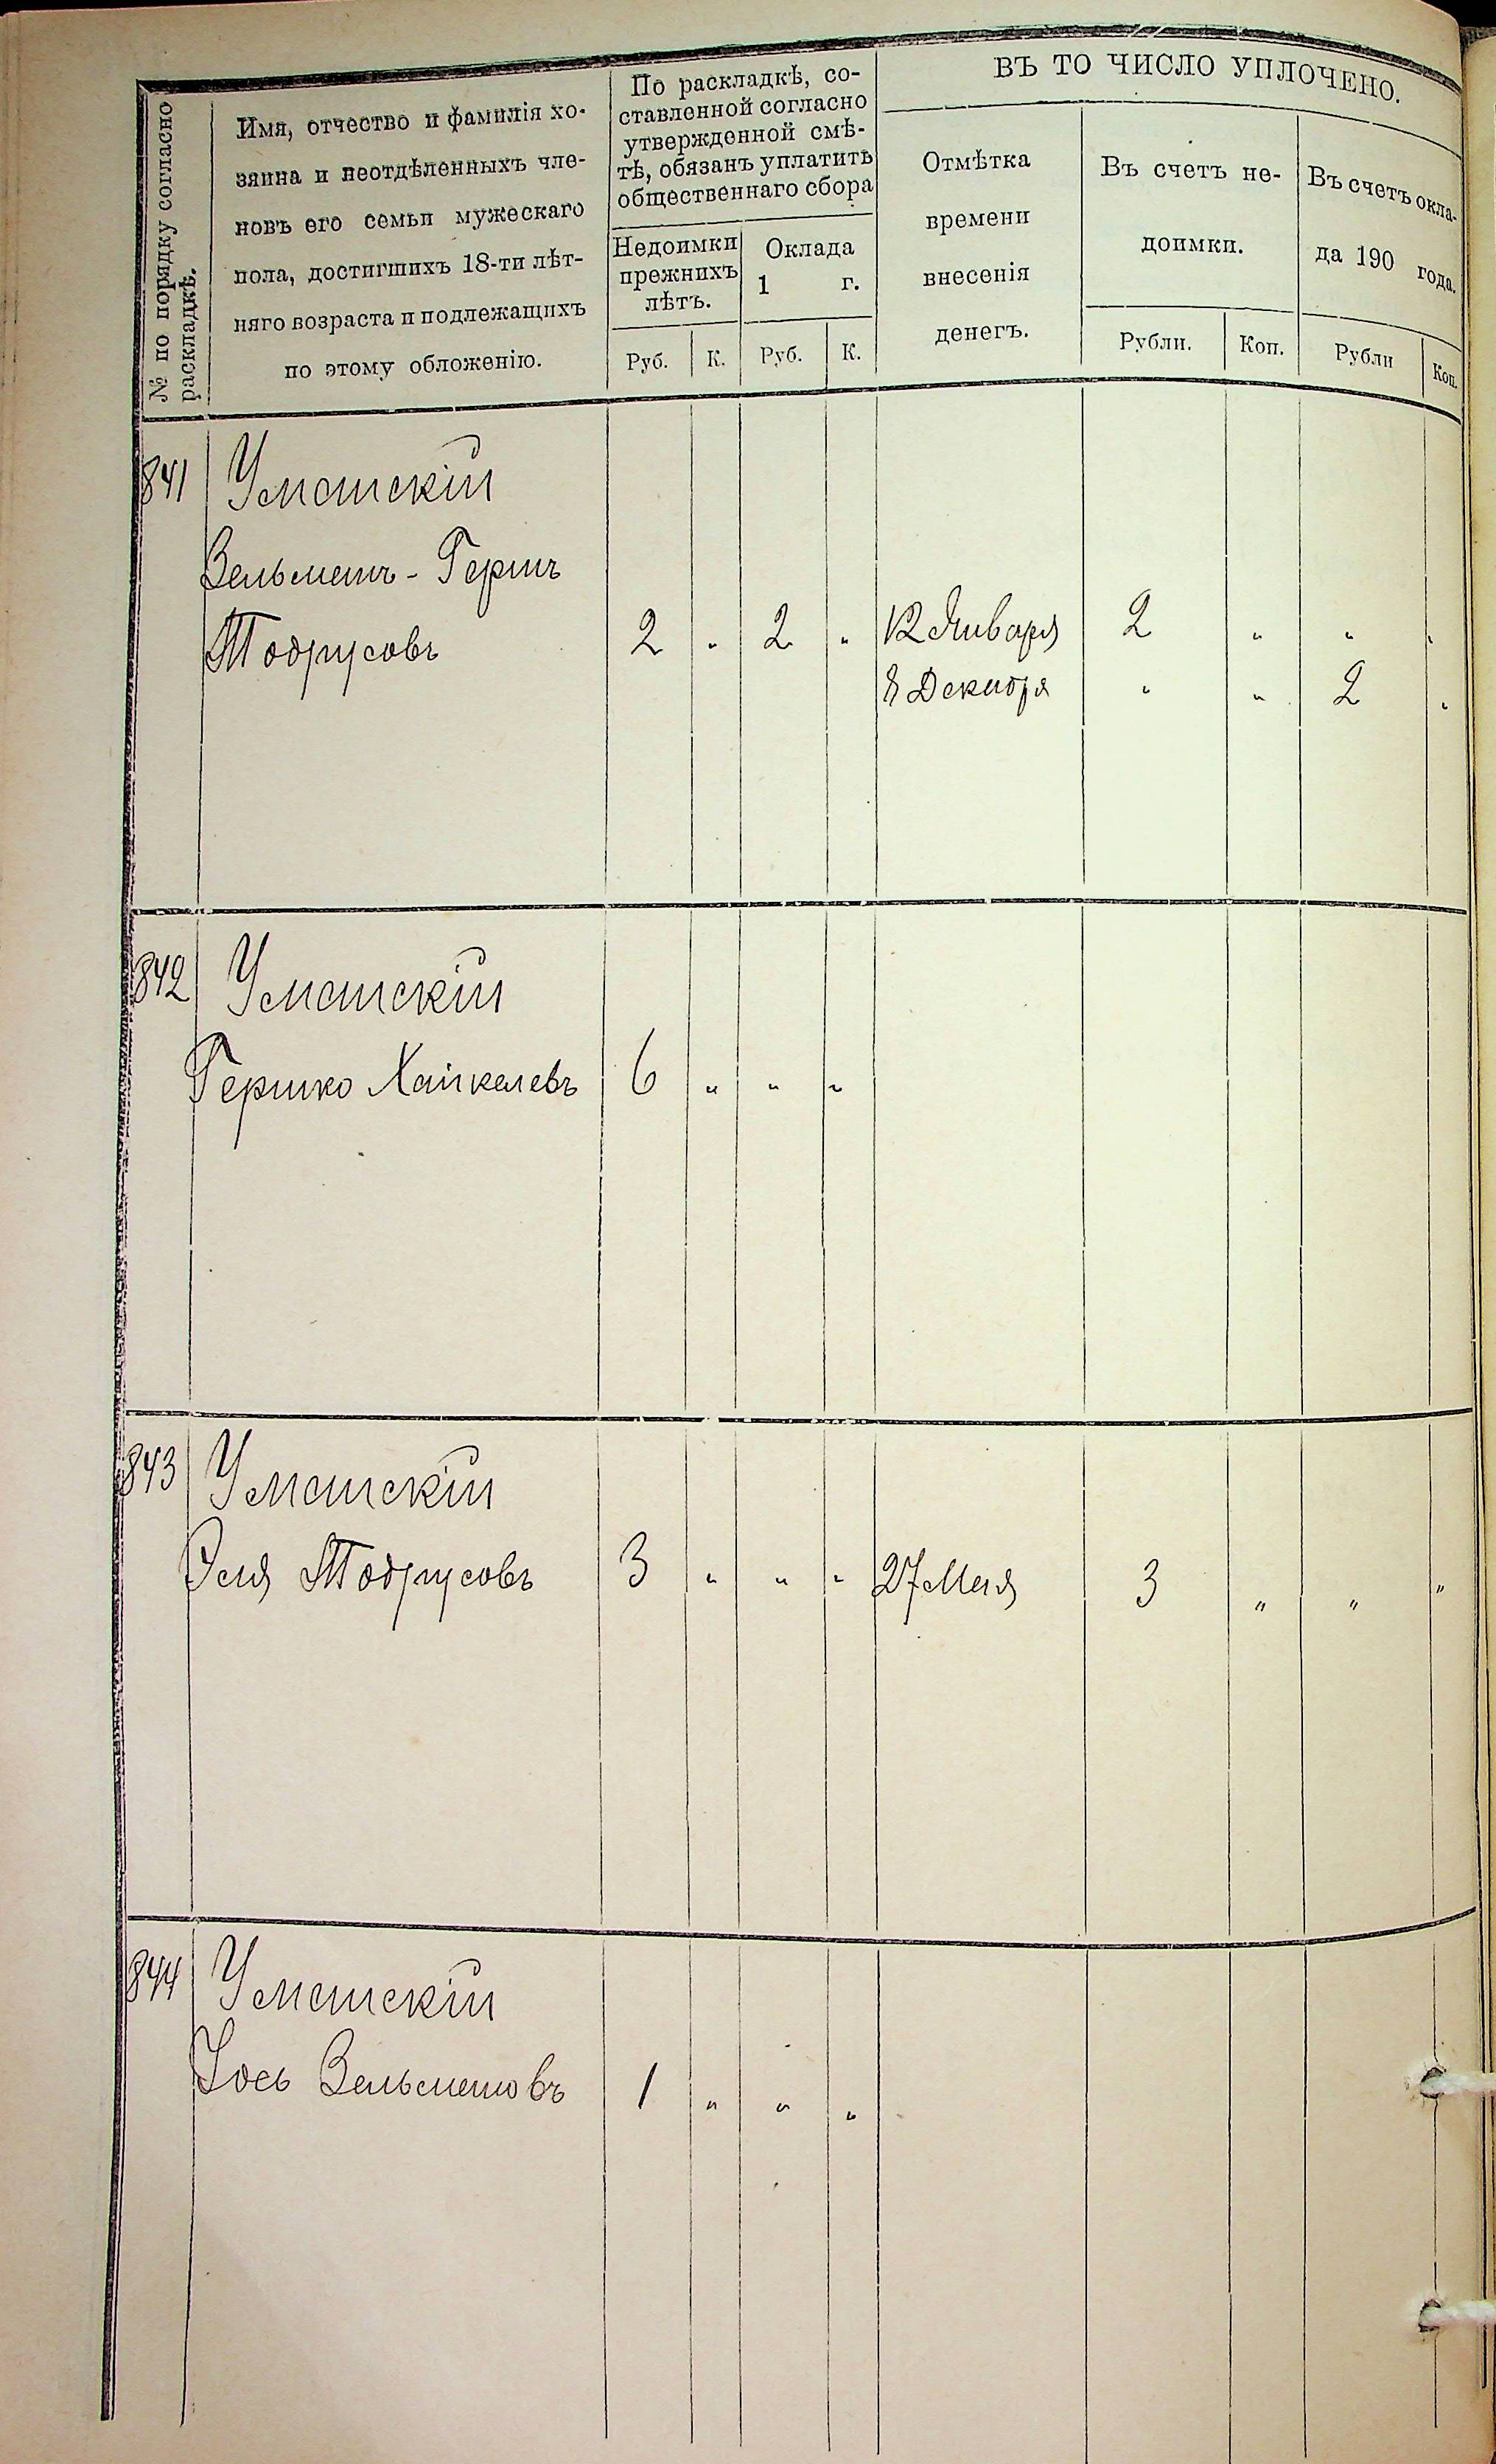 № по порядку согласно
раскладкѣ.
Имя, отчество и фамилія хо-
зяина и неотдѣленныхъ чле-
новъ его семьи мужескаго
пола, достигшихъ 18-ти лѣт-
няго возраста и подлежащихъ
по этому обложенію.
По раскладкѣ, со-
ставленной согласно
утвержденной смѣ-
тѣ, обязанъ уплатить
общественнаго сбора
Недоимки
прежнихъ
лѣтъ.
Руб. К.
Оклада
1 г.
Руб. К.
ВЪ ТО ЧИСЛО УПЛОЧЕНО.
Отмѣтка
времени
внесенія
денегъ.
Въ счетъ не-
доимки.
Рубли. Коп.
Въ счетъ окла-
да 190 года.
Рубли Коп.
841 Уманскій
Зельменъ - Гершъ
Тодрусовъ 2 „ 2 „ 12 Января 2 „ „ „
8 Декабря „ „ 2 „
842 Уманскій
Гершко Хайкелевъ 6 „ „ „
843 Уманскій
Эля Тодрусовъ 3 „ „ „ 27 Мая 3 „ „ „
844 Уманскій
Іось Зельменовъ 1 „ „ „